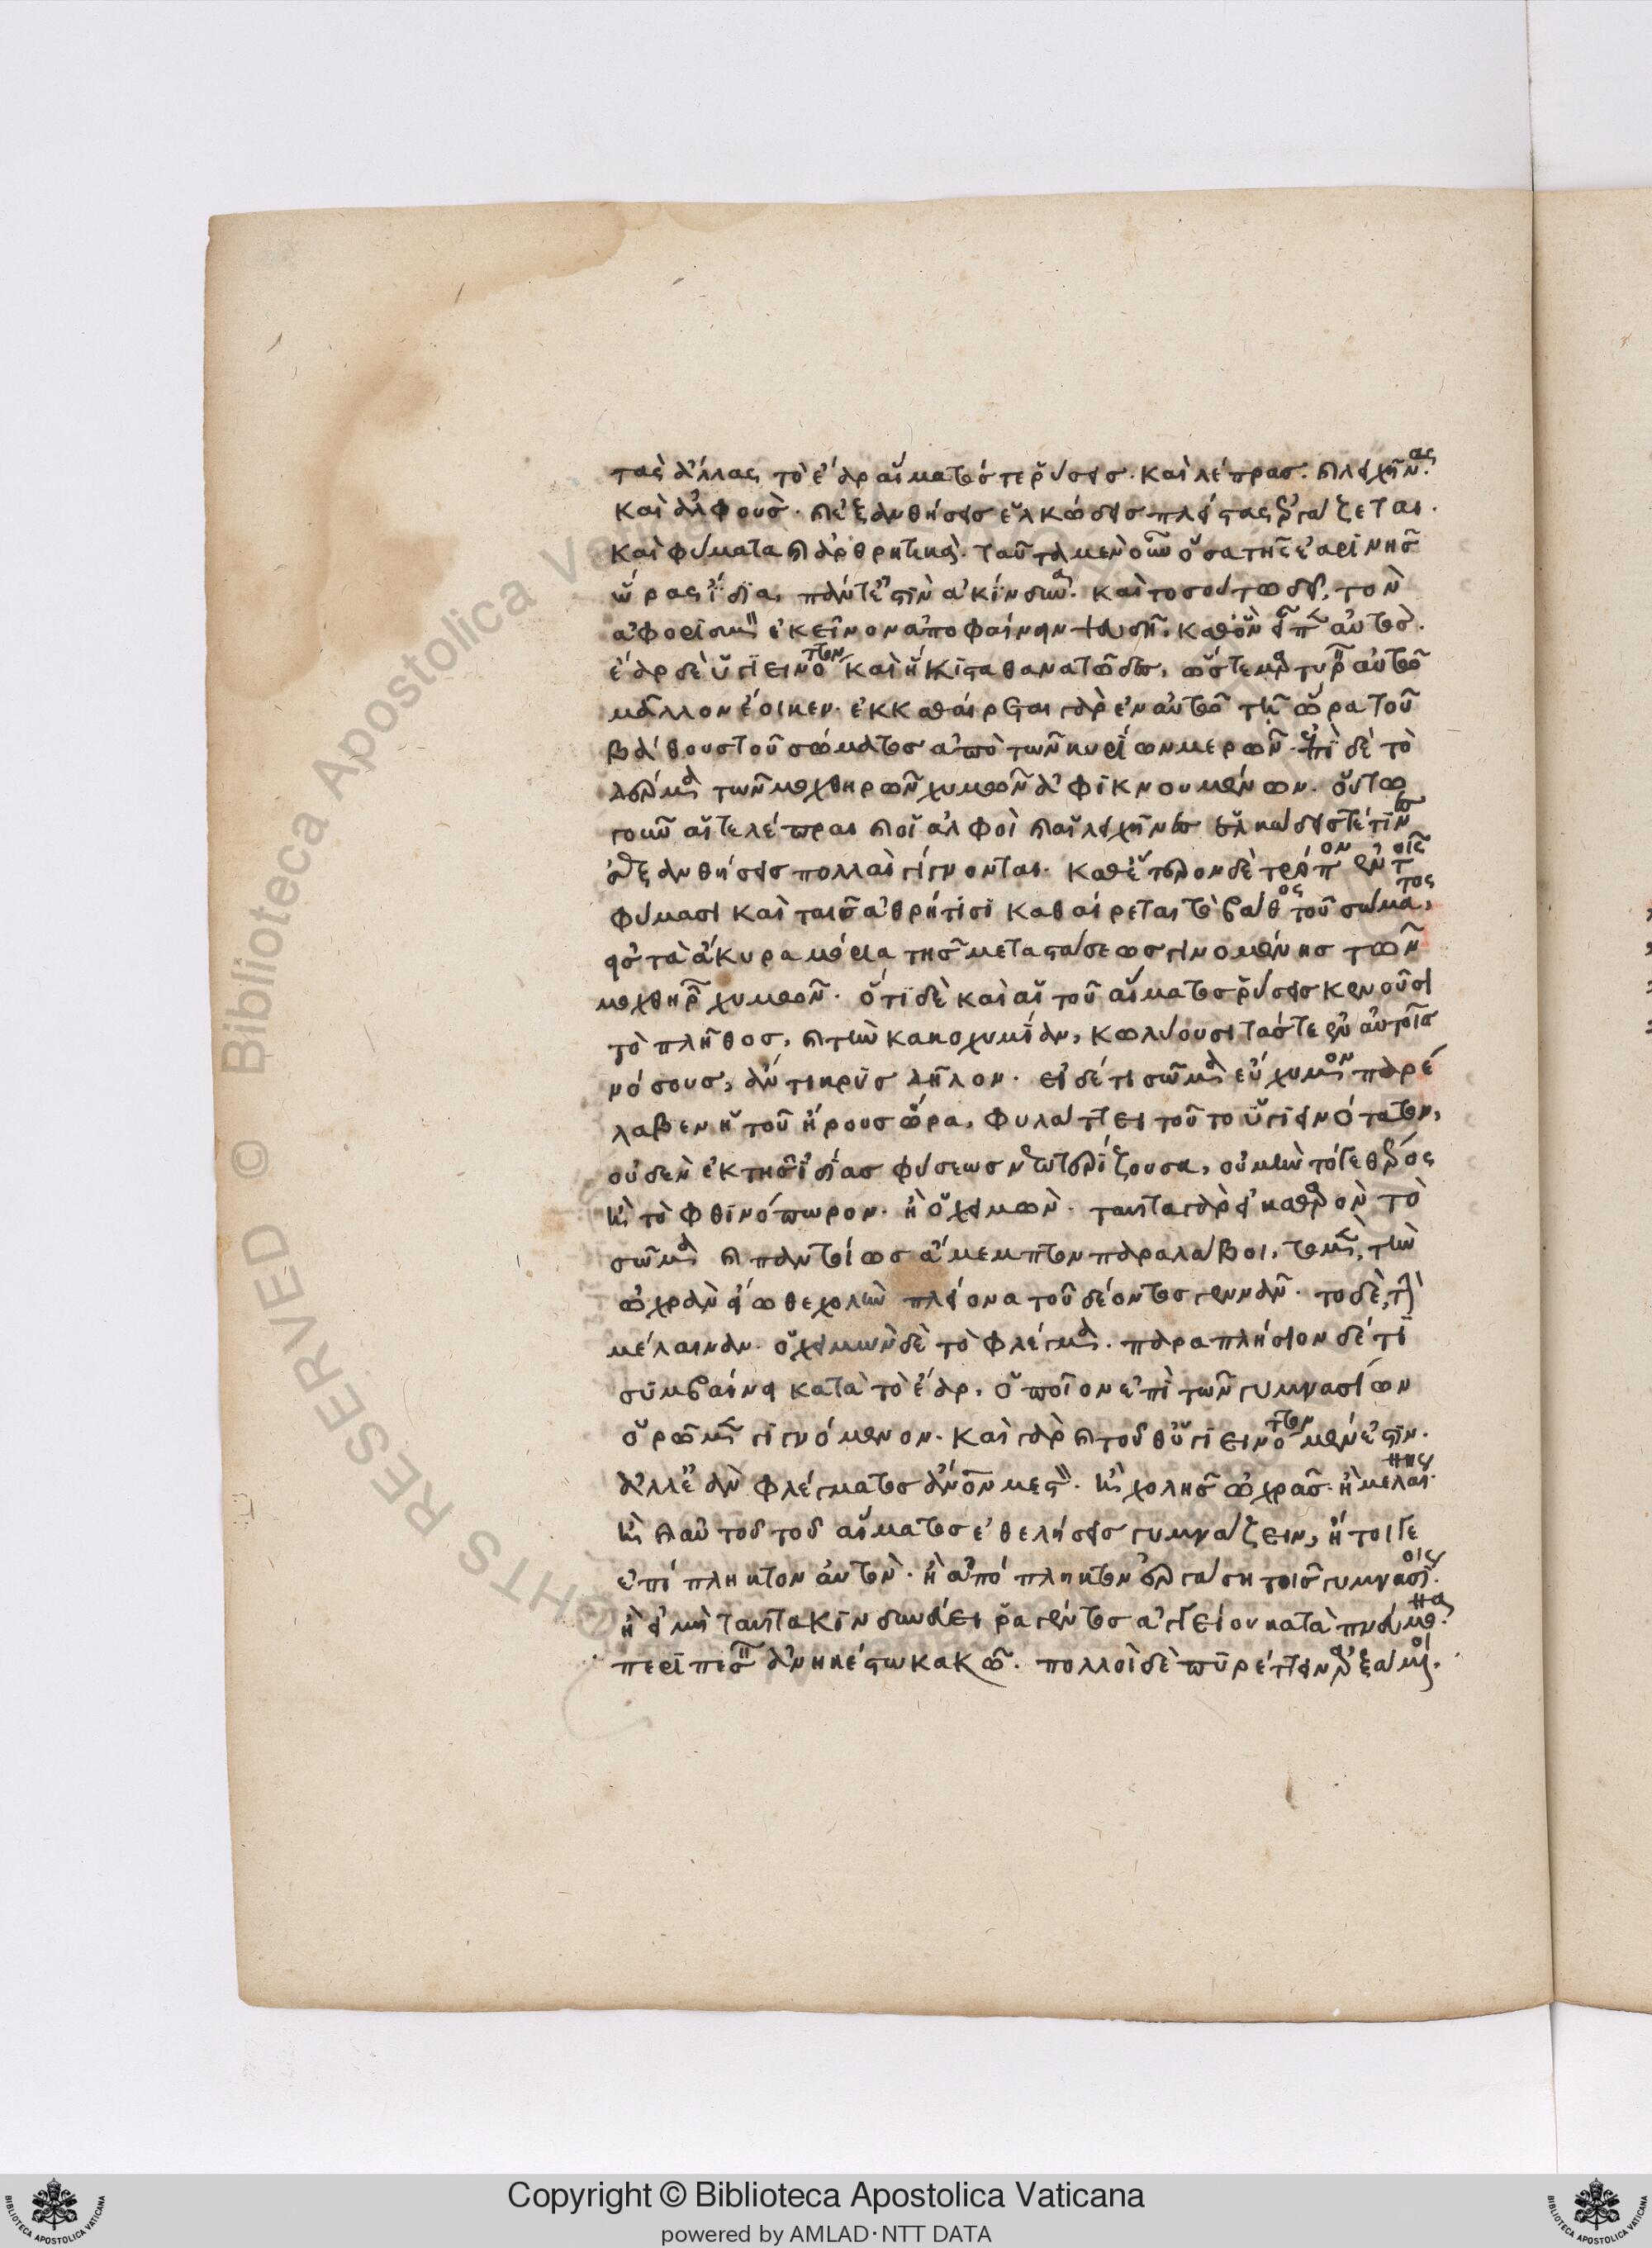 τὰς ἄλλας τὸ ἔαρ αἵματός τε ῥύσεις. καὶ λέπρας. καὶ λειχῆνας.
καὶ ἀλφοὺς. καὶ ἐξανθήσεις ἑλκώσεις πλείστας ἐργάζεται.
καὶ φύματα καὶ ἀρθριτικὰ. ταῦτα μὲν οὖν ὅσα τῆς ἐαρινῆς
ὥρας ἴδια, πάντ' ἐστὶν ἀκίνδυνα. καὶ τοσούτω δεῖ, τὸν
ἀφορισμὸν ἐκεῖνον ἀποφαίνειν ψευδῆ, καθ' ὃν εἶπεν αὐτὸς.
ἔαρ δὲ ὑγιεινότατον καὶ ἥκιστα θανατῶδες, ὥστε μαρτυρεῖν αὐτῶ
μᾶλλον ἔοικεν. ἐκκαθαίρεται γὰρ ἐν αὐτῶ τῆ ὥρα τοῦ
βάθους τοῦ σώματος ἀπὸ τῶν κυρίων μερῶν. ἐπὶ δὲ τὸ
δέρμα τῶν μοχθηρῶν χυμῶν ἀφικνουμένων. οὕτω
γοῦν αἵ τε λέπραι καὶ οἱ ἀλφοὶ καὶ οἱ λειχῆνες ἑλκώσεις τέ τινες
ἐξανθήσεις πολλαὶ γίγνονται. καθ' ἕτερον δὲ τρόπον ἐν τοῖς
φύμασι καὶ ταῖς ἀρθρίτισι καθαίρεται τὸ βάθος τοῦ σώματος,
εἰς τὰ ἄκυρα μόρια τῆς μεταστάσεως γινομένης τῶν
μοχθηρῶν χυμῶν. ὅτι δὲ καὶ αἱ τοῦ αἵματος ῥύσεις κενοῦσι
τὸ πλῆθος, καὶ τὴν κακοχυμίαν, κωλύουσι τὰς τε ἐν αὐτοῖς
νόσους, ἄντικρυς δῆλον. εἰ δέ τι σῶμα εὔχυμον παρέ
λαβεν ἡ τοῦ ἦρος ὥρα, φυλάττει τοῦτο ὑγιεινότατον,
οὐδὲν ἐκ τῆς ἰδίας φύσεως νεωτερίζουσα, οὐ μὴν τό τε θέρος
καὶ τὸ φθινόπωρον. ἢ ὁ χειμὼν. ταῦτα γὰρ εἰ καθαρὸν τὸ
σῶμα καὶ παντοίως ἄμεμπτον παραλάβοι, τὸ μὲν, τὴν
ὠχρὰν εἴωθε χολὴν πλείονα τοῦ δέοντος γεννᾶν. τὸ δὲ, τὴν
μέλαιναν. ὁ χειμὼν δὲ τὸ φλέγμα. παραπλήσιον δέ τι
συμβαίνει κατὰ τὸ ἔαρ, ὁποῖον ἐπὶ τῶν γυμνασίων
ὁρῶμεν γιγνόμενον. καὶ γὰρ καὶ τοῦθ' ὑγιεινότατον μέν ἐστιν.
ἀλλ' ἐὰν φλέγματος ἄνθρωπον μεστὸν. καὶ χολῆς ὠχρᾶς. ἢ μελαίνης
καὶ αὐτοῦ τοῦ αἵματος ἐθελήσεις γυμνάζειν, ἤτοι γε
ἐπίπληκτον αὐτὸν. ἢ ἀπόπληκτον ἐργάση τοῖς γυμνασίοις.
ἢ εἰ μὴ ταῦτα κινδυνεύει ῥαγέντος ἀγγείου κατὰ πνεύμονα
περιπεσεῖν ἀνηκέστω κακῶ. πολλοὶ δὲ πυρέττειν ἤρξαντο.
Copyright © Biblioteca Apostolica Vaticana
powered by AMLAD·NTT DATA